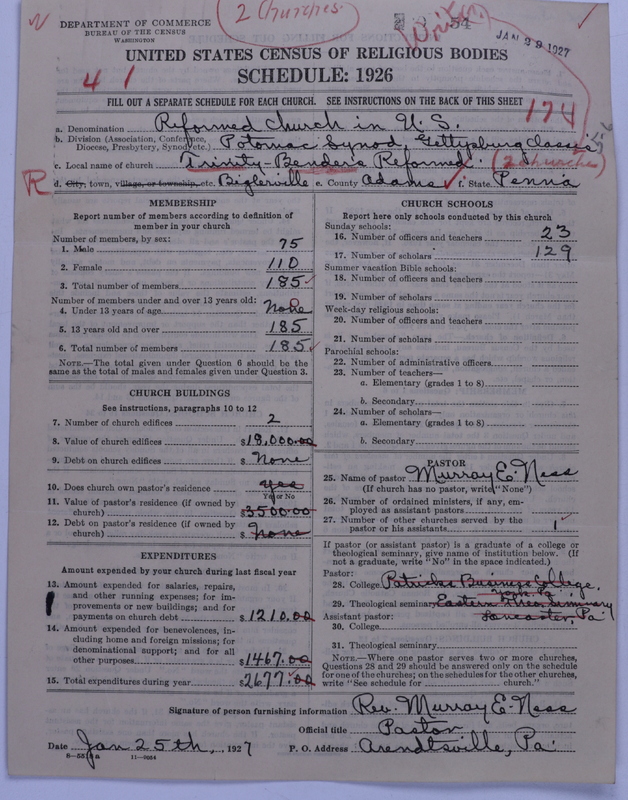 2 Churches.
54
JAN 29 1927
DEPARTMENT OF COMMERCE
BUREAU OF THE CENSUS
WASHINGTON
UNITED STATES CENSUS OF RELIGIOUS BODIES
SCHEDULE: 1926
4 1
FILL OUT A SEPARATE SCHEDULE FOR EACH CHURCH. SEE INSTRUCTIONS ON THE BACK OF THIS SHEET
174
a. Denomination Reformed Church in U.S.
b. Division (Association, Conference, Diocese, Presbytery, Synod, etc.) Potomac Synod, Gettysburg Classis
c. Local name of church Trinity-Bender's Reformed. (2 churches)
R d. City, town, village, or township, etc. Biglerville e. County Adams f. State Penn'a
MEMBERSHIP
Report number of members according to definition of
member in your church
Number of members, by sex:
1. Male 75
2. Female 110
3. Total number of members 185
Number of members under and over 13 years old:
4. Under 13 years of age None
5. 13 years old and over 185
6. Total number of members 185
NOTE.—The total given under Question 6 should be
same as the total of males and females given under Question 3.
CHURCH BUILDINGS
See instructions, paragraphs 10 to 12
7. Number of church edifices 2
8. Value of church edifices $18,000.00
9. Debt on church edifices $ None
10. Does church own pastor's residence yes
Yes or No
11. Value of pastor's residence (if owned by
church) $3500.00
12. Debt on pastor's residence (if owned by
church) $ None
EXPENDITURES
Amount expended by your church during last fiscal year
13. Amount expended for salaries, repairs,
and other running expenses; for im-
provements or new buildings; and for
payments on church debt $1210.00
14. Amount expended for benevolences, in-
cluding home and foreign missions; for
denominational support; and for all
other purposes $1467.00
15. Total expenditures during year $2677.00
CHURCH SCHOOLS
Report here only schools conducted by this church
Sunday schools:
16. Number of officers and teachers 23
17. Number of scholars 129
Summer vacation Bible schools:
18. Number of officers and teachers
19. Number of scholars
Week-day religious schools:
20. Number of officers and teachers
21. Number of scholars
Parochial schools:
22. Number of administrative officers
23. Number of teachers—
a. Elementary (grades 1 to 8)
b. Secondary
24. Number of scholars—
a. Elementary (grades 1 to 8)
b. Secondary
PASTOR
25. Name of pastor Murray E. Ness
(If church has no pastor, write "None")
26. Number of ordained ministers, if any, em-
ployed as assistant pastors
27. Number of other churches served by the
pastor or his assistants 1
If pastor (or assistant pastor) is a graduate of a college or
theological seminary, give name of institution below. (If
not a graduate, write "No" in the space indicated.)
Pastor:
28. College Patricks Business College,
York Pa.
29. Theological seminary Eastern Theo. Seminary
Assistant pastor: Lancaster, Pa
30. College
31. Theological seminary
NOTE.—Where one pastor serves two or more churches,
Questions 28 and 29 should be answered only on the schedule
for one of the churches; on the schedules for the other churches,
write "See schedule for church."
Signature of person furnishing information Rev. Murray E. Ness
Official title Pastor
Date Jan 25th, 1927 P. O. Address Arendtsville, Pa.
11—9084